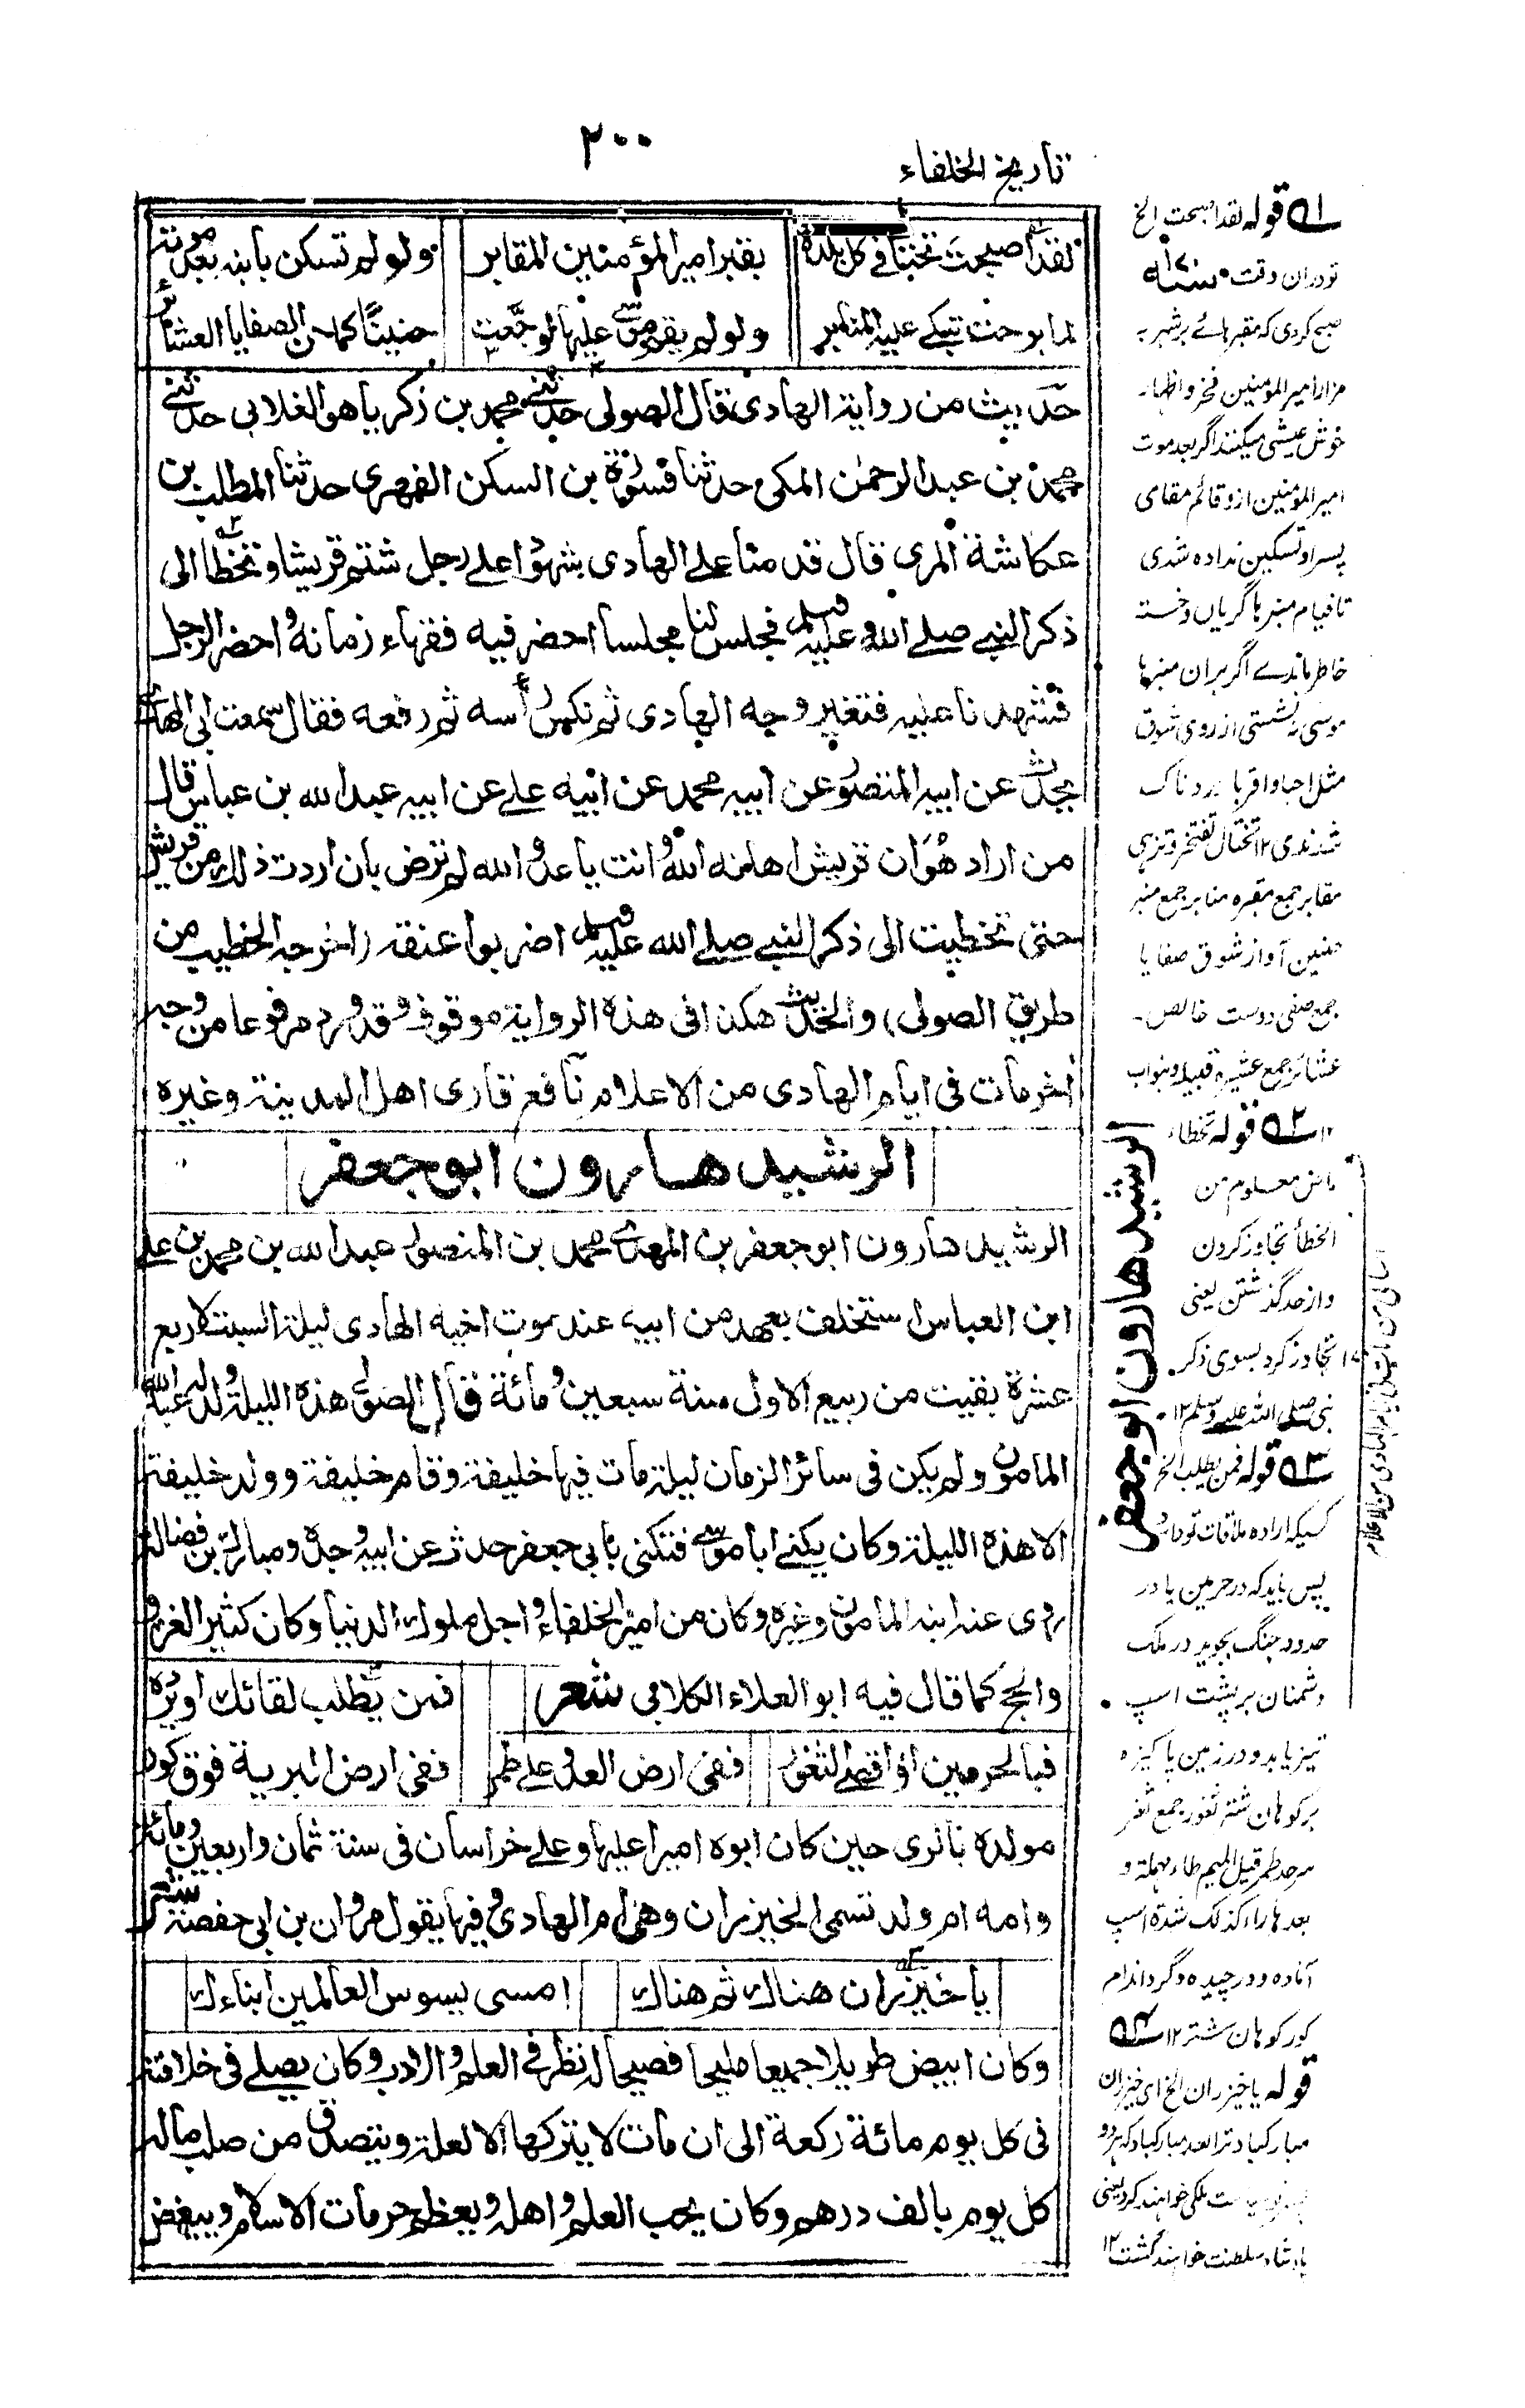 ٢٠٠
تاريخ الخلفاء
لقد اصبحت تختال في كل بلدة
بقبر امير المؤمنين المقابر
ولو لم تسكن بابنه بعد موته
لما برحت تبكي عليه المنابر
ولو لم يقم موسى عليها لرجعت
حنينا كما حن الصفايا العشائر
حديث من رواية الهادى قال الصولى حدثنى محمد بن زكريا هو الغلابى حدثنى
محمد بن عبد الرحمٰن المكى حدثنا قسورة بن السكن الفهرى حدثنا المطلب بن
عكاشة المرى قال قدمنا على الهادى شهودا على رجل شتم قريشا وتخطا الى
ذكر النبى صلى الله عليه وسلم فجلس لنا مجلسا احضر فيه فقهاء زمانه واحضر الرجل
فشهدنا عليه فتغير وجه الهادى ثم نكس رأسه ثم رفعه فقال سمعت ابى المهدى
يحدث عن ابيه المنصور عن ابيه محمد عن ابيه على عن ابيه عبد الله بن عباس قال
من اراد هَوان قريش اهانه الله وانت يا عدو الله لم ترض بان اردت ذلك من قريش
حتى تخطيت الى ذكر النبى صلى الله عليه وسلم اضربوا عنقه (اخرجه الخطيب من
طريق الصولى) والحديث هكذا فى هذه الرواية موقوف وقد ورد مرفوعا من وجه
اخر مات فى ايام الهادى من الاعلام نافع قارى اهل المدينة وغيره
الرشيد هارون ابو جعفر
الرشيد هارون ابو جعفر بن المهدى محمد بن المنصور عبد الله بن محمد بن على
ابن العباس استخلف بعهد من ابيه عند موت اخيه الهادى ليلة السبت لاربع
عشرة بقيت من ربيع الاول سنة سبعين ومائة قال الصولى هذه الليلة ولد له عبد الله
المامون ولم يكن فى سائر الزمان ليلة مات فيها خليفة وقام خليفة وولد خليفة
الا هذه الليلة وكان يكنى ابا موسى فتكنى بابى جعفر حدث عن ابيه وجده ومبارك بن فضالة
روى عنه ابنه المامون وغيره وكان من اميز الخلفاء واجل ملوك الدنيا وكان كثير الغزو
والحج كما قال فيه ابو العلاء الكلابى شعر
فمن يطلب لقائك او يرده
فبالحرمين او اقصى الثغور
ففى ارض العدو على طمر
ففى ارض البرية فوق كور
مولده بالرى حين كان ابوه اميرا عليها وعلى خراسان فى سنة ثمان واربعين ومائة
وامه ام ولد تسمى الخيزران وهى ام الهادى وفيها يقول مروان بن ابى حفصة شعر
يا خيزران هناك ثم هناك
امسى يسوس العالمين ابناءك
وكان ابيض طويلا جميعا مليحا فصيحا له نظر فى العلم والادب وكان يصلى فى خلافته
فى كل يوم مائة ركعة الى ان مات لا يتركها الا لعلة ويتصدق من صلب ماله
كل يوم بالف درهم وكان يحب العلم واهله ويعظم حرمات الاسلام ويبغض
قوله لقد اصبحت الخ
تو دران وقت
صبح كردى كه مقبرهائے ہر شہر بہ
مزار امير المؤمنين فخر واظہار
خوش عيشى ميكنند اگر بعد موت
امير المؤمنين از و قائم مقامى
پسر او تسكين نداده شدى
تا قيام منبرها گرياں و خستہ
خاطر ماندے اگر بران منبرہا
موسى نہ نشستى از روى شوق
مثل احبا و اقربا دردناک
شدندى ١٢ تختال تفتخر
مقابر جمع مقبره منابر جمع منبر
حنين آواز شوق صفايا
جمع صفى دوست خالص
عشائر جمع عشيره قبيله
قوله تخطاء
معلوم من
الخطأ تجاوز كردن
و از حد گذشتن يعنى
تجاوز كرد بسوى ذكر
نبى صلى الله عليه وسلم ١٢
قوله فمن يطلب الخ
كسيكہ اراده ملاقات تو دارد
پس بايد كہ در حرمين يا در
حدود جنگ بجويد در ملک
دشمنان بر پشت اسپ
تيز يابد و در زمين پاكيزه
بر كوہان شتر ثغور جمع ثغر
سرحد طمر قيل الميم طاء مهملة و
بعدها راء كذلک شدة اسپ
آماده و در چيده و گرد اندام
كور كوہان شتر ١٢
قوله يا خيزران الخ اى خيزران
مباركباد ترا بعد مباركباد كہ ہر دو
ملكى خواہند كرد يعنى
بادشاه سلطنت خواہند گشت ١٢
الرشيد هارون ابو جعفر